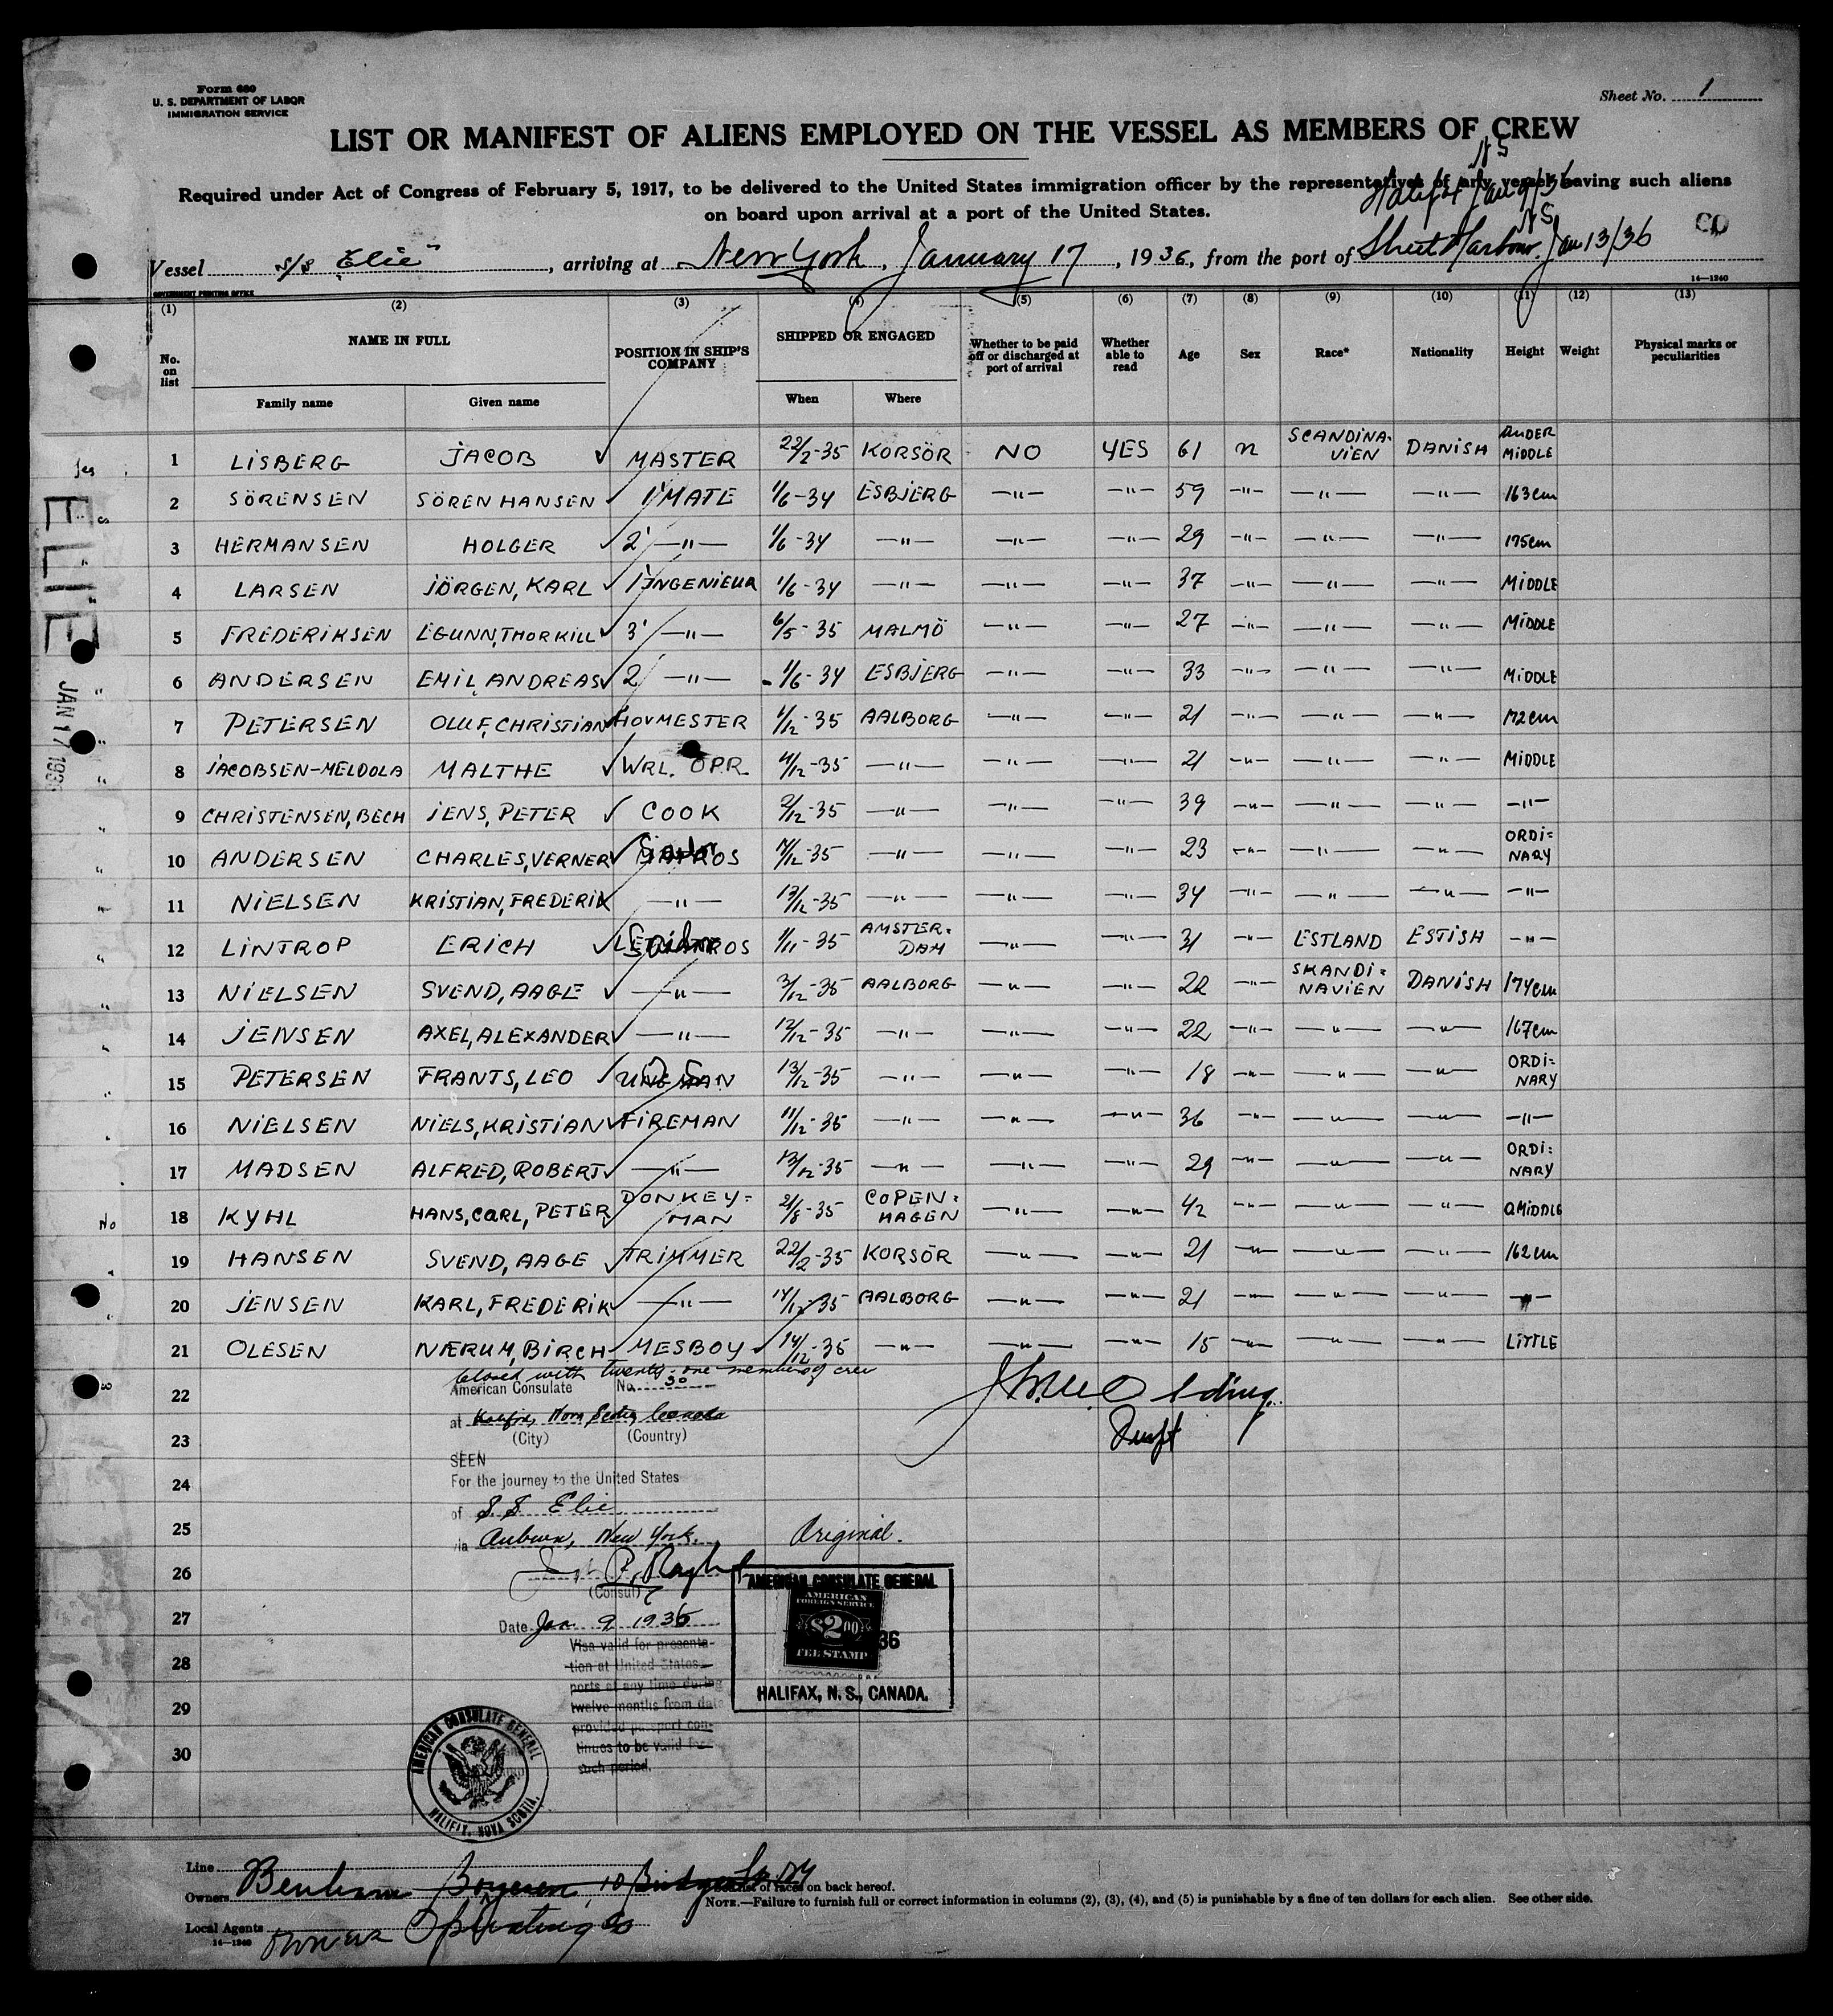 Form 680
U. S. DEPARTMENT OF LABOR
IMMIGRATION SERVICE
Sheet No. 1
LIST OR MANIFEST OF ALIENS EMPLOYED ON THE VESSEL AS MEMBERS OF CREW
Required under Act of Congress of February 5, 1917, to be delivered to the United States immigration officer by the representatives of any vessel having such aliens
on board upon arrival at a port of the United States.
NS
Halifax Jan 9/36
NS
CD
Vessel S/S "Elie", arriving at New York, January 17, 1936, from the port of Sheet Harbour Jan 13/36
GOVERNMENT PRINTING OFFICE
14—1240
(1) (2) (3) (4) (5) (6) (7) (8) (9) (10) (11) (12) (13)
No. on list
NAME IN FULL
Family name
Given name
POSITION IN SHIP'S COMPANY
SHIPPED OR ENGAGED
When
Where
Whether to be paid off or discharged at port of arrival
Whether able to read
Age
Sex
Race*
Nationality
Height
Weight
Physical marks or peculiarities
1 LISBERG JACOB ✓ MASTER 22/2-35 KORSÖR NO YES 61 m SCANDINA-VIEN DANISH UNDER MIDDLE
2 SÖRENSEN SÖREN HANSEN ✓ 1' MATE 1/6-34 ESBJERG —"— —"— 59 —"— —"— —"— 163cm
3 HERMANSEN HOLGER ✓ 2' —"— 1/6-34 —"— —"— —"— 29 —"— —"— —"— 175cm
4 LARSEN JÖRGEN, KARL ✓ 1' INGENIEUR 1/6-34 —"— —"— —"— 37 —"— —"— —"— MIDDLE
5 FREDERIKSEN EGUNN, THORKILL ✓ 3' —"— 6/5-35 MALMÖ —"— —"— 27 —"— —"— —"— MIDDLE
6 ANDERSEN EMIL, ANDREAS ✓ 2' —"— 1/6-34 ESBJERG —"— —"— 33 —"— —"— —"— MIDDLE
7 PETERSEN OLUF, CHRISTIAN HOVMESTER /12-35 AALBORG —"— —"— 21 —"— —"— —"— 172cm
8 JACOBSEN-MELDOLA MALTHE ✓ WRL. OPR. /12-35 —"— —"— —"— 21 —"— —"— —"— MIDDLE
9 CHRISTENSEN, BECH JENS, PETER ✓ COOK 2/12-35 —"— —"— —"— 39 —"— —"— —"— —"—
10 ANDERSEN CHARLES, VERNER ✓ MATROS Sailor /12-35 —"— —"— —"— 23 —"— —"— —"— ORDI=NARY
11 NIELSEN KRISTIAN, FREDERIK —"— 12/12-35 —"— —"— —"— 34 —"— —"— —"— —"—
12 LINTROP ERICH ✓ LETMATROS Sailor 1/11-35 AMSTER=DAM —"— —"— 31 —"— ESTLAND ESTISH —"—
13 NIELSEN SVEND, AAGE ✓ —"— 3/12-35 AALBORG —"— —"— 22 —"— SKANDI=NAVIEN DANISH 174cm
14 JENSEN AXEL, ALEXANDER ✓ —"— 12/12-35 —"— —"— —"— 22 —"— —"— —"— 167cm
15 PETERSEN FRANTS, LEO ✓ UNGMAN O.S. 13/12-35 —"— —"— —"— 18 —"— —"— —"— ORDI=NARY
16 NIELSEN NIELS, KRISTIAN ✓ FIREMAN 11/12-35 —"— —"— —"— 36 —"— —"— —"— —"—
17 MADSEN ALFRED, ROBERT ✓ —"— 13/12-35 —"— —"— —"— 29 —"— —"— —"— ORDI=NARY
18 KYHL HANS, CARL, PETER ✓ DONKEY=MAN 2/8-35 COPEN=HAGEN —"— —"— 42 —"— —"— —"— MIDDLE
19 HANSEN SVEND, AAGE ✓ TRIMMER 22/2-35 KORSÖR —"— —"— 21 —"— —"— —"— 162cm
20 JENSEN KARL, FREDERIK ✓ —"— 14/12-35 AALBORG —"— —"— 21 —"— —"— —"— —"—
21 OLESEN NÆRUM, BIRCH ✓ MESBOY ✓ 14/12-35 —"— —"— —"— 15 —"— —"— —"— LITTLE
Closed with twenty-one members of crew
22
23
24
25
26
27
28
29
30
American Consulate No. 30
at Halifax, Nova Scotia Canada
(City) (Country)
SEEN
For the journey to the United States
of S.S Elie
via Auburn, New York.
Original.
(Consul)
Date Jan 9 1936
Visa valid for presenta-
tion at United States
ports at any time during
twelve months from date
provided passport con-
tinues to be valid for
such period.
AMERICAN CONSULATE GENERAL
AMERICAN
FOREIGN SERVICE
$2.00
FEE STAMP
36
HALIFAX, N. S., CANADA.
AMERICAN CONSULATE GENERAL
HALIFAX, NOVA SCOTIA.
Yes
No
ELIE
JAN 17 193
Line
Owners
Benham Boyesen, 10 Bridge St. NY
*See list of races on back hereof.
NOTE.—Failure to furnish full or correct information in columns (2), (3), (4), and (5) is punishable by a fine of ten dollars for each alien. See other side.
Local Agents
Operating Co
14—1240